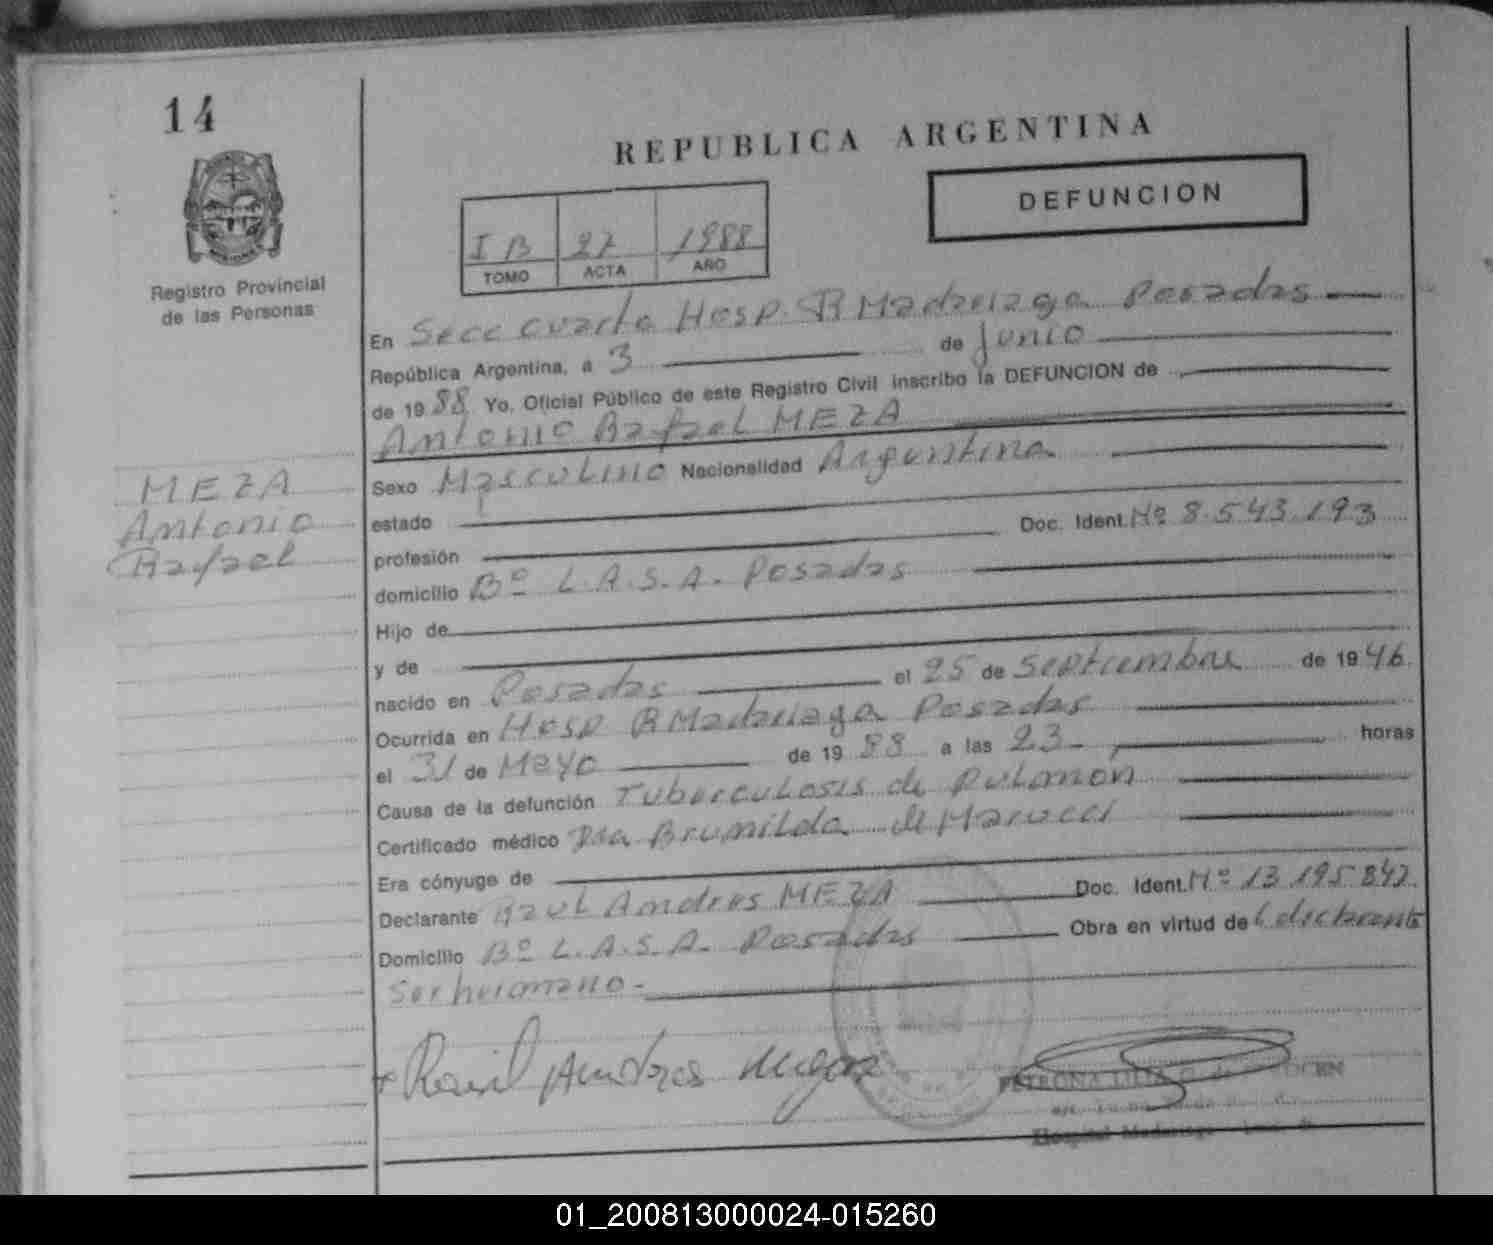 14
REPUBLICA ARGENTINA
DEFUNCION
Registro Provincial
de las Personas
I B 27 1988
TOMO ACTA AÑO
En Secc cuarta Hosp. R Madariaga Posadas
República Argentina, a 3 de junio
de 1988 Yo, Oficial Público de este Registro Civil inscribo la DEFUNCION de
Antonio Rafael MEZA
MEZA
Antonio
Rafael
Sexo Masculino Nacionalidad Argentina
estado
Doc. Ident. Nº 8.543.193
profesión
domicilio Bº L.A.S.A. Posadas
Hijo de
y de
nacido en Posadas el 25 de Septiembre de 1946.
Ocurrida en Hosp R Madariaga Posadas
el 31 de Mayo de 1988 a las 23 horas
Causa de la defunción Tuberculosis de Pulmón
Certificado médico Dra Brunilda de Marucci
Era cónyuge de
Declarante Raul Andres MEZA Doc. Ident. Nº 13.195.842.
Domicilio Bº L.A.S.A. Posadas Obra en virtud de
Ser hermano.
Raul Andres Meza
PETRONA
Hospital Madariaga
01_200813000024-015260